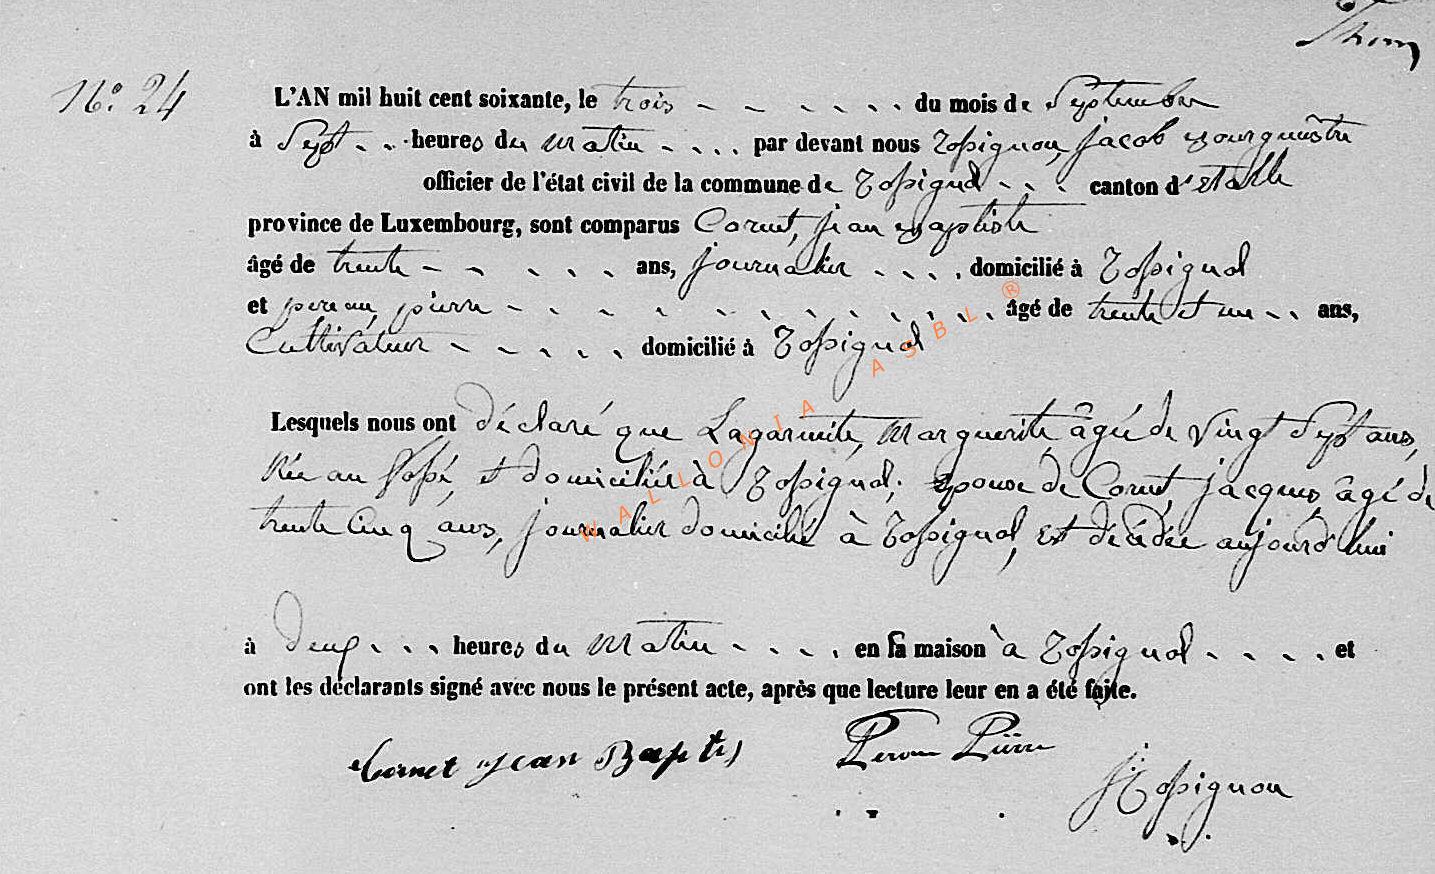 Thom
N° 24
L'AN mil huit cent soixante, le trois du mois de Septembre
à Sept heures du Matin par devant nous Rossignon, Jacob Bourgmestre
officier de l'état civil de la commune de Rossignol canton d'Etalle
province de Luxembourg, sont comparus Cornet, Jean Baptiste
âgé de trente ans, journalier domicilié à Rossignol
et perau, pierre âgé de trente et un ans,
Cultivateur domicilié à Rossignol
Lesquels nous ont déclaré que Lagarmite, Marguerite âgée de Vingt Sept ans,
Née au et domiciliée à Rossignol, Epouse de Cornet, jacques, âgé de
trente Cinq ans, journalier domicilié à Rossignol, est décédée aujourd'hui
à deux heures du Matin en sa maison à Rossignol et
ont les déclarants signé avec nous le présent acte, après que lecture leur en a été faite.
Cornet Jean Baptis Pierre
J Rossignon
WALLONIA ASBL ®